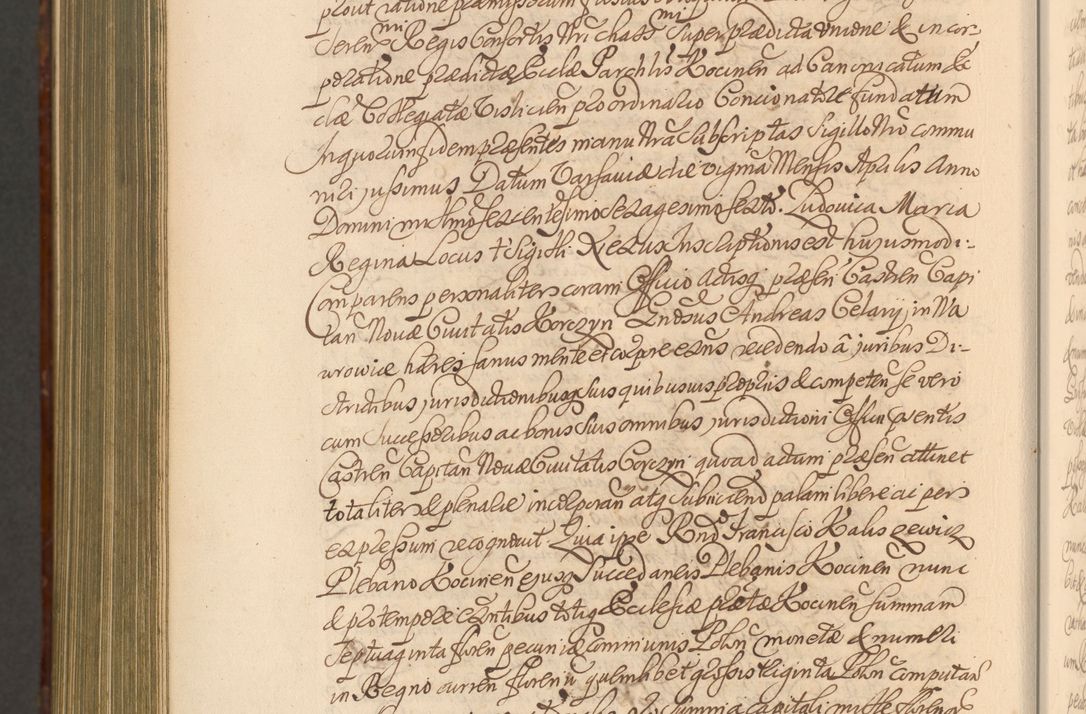 prout ratione præmissorum
Seren̄ mi Regis Consortis Nri chass mi super prædicta unione & incor-
poratione prædictæ Ecclæ Parchlis Kocinen̄ ad Canonicatum Ec
clæ Collegiatæ Vislicien̄ pro ordinario Concionatore fundatum
In quorum fidem præsentes manu Nra subscriptas sigillo Nro commu
niri jussimus Datum Varsaviæ die vigma Mensis Aprilis Anno
Domini millmo sexcentesimo sexagesimo sexto. Ludovica Maria
Regina Locus † Sigilli. Nexus Inscriptionis est hujusmodi:-
Comparens personaliter coram Officio Actisq præsen̄ Castren̄ Capi
tan̄ Novæ Civitatis Korczyn Gn̄dsus Andreas Celary in Na
wrowice hæres sanus mente et corpore exn̄s recedendo â juribus Di-
strictibus jurisdictionibusq suis quibusvis propriis & competen̄ se vero
cum successoribus ac bonis suis omnibus jurisdictioni Officii præsentis
Castren̄ Capitan̄ Novæ Civitatis Corczyn quoad actum præsen̄ attinet
totaliter & plenarie incorporan̄ atq subiiciend palam libere ac per
expressum recognovit. Quia ipse Rndo Francisco Kaliszewicz
Plebano Kocinen̄ ejusq Succedaneis Plebanis Kocinen̄ nunc
& pro tempore existentibus totiq Ecclesiæ prætæ Kocinen̄ summam
Septuaginta floren̄ pecuniæ communis Polon̄ monetæ & numeri
in Regno curren̄ florenū quemlibet per grossos triginta Polon̄ computan̄
summa capitali mille floreno